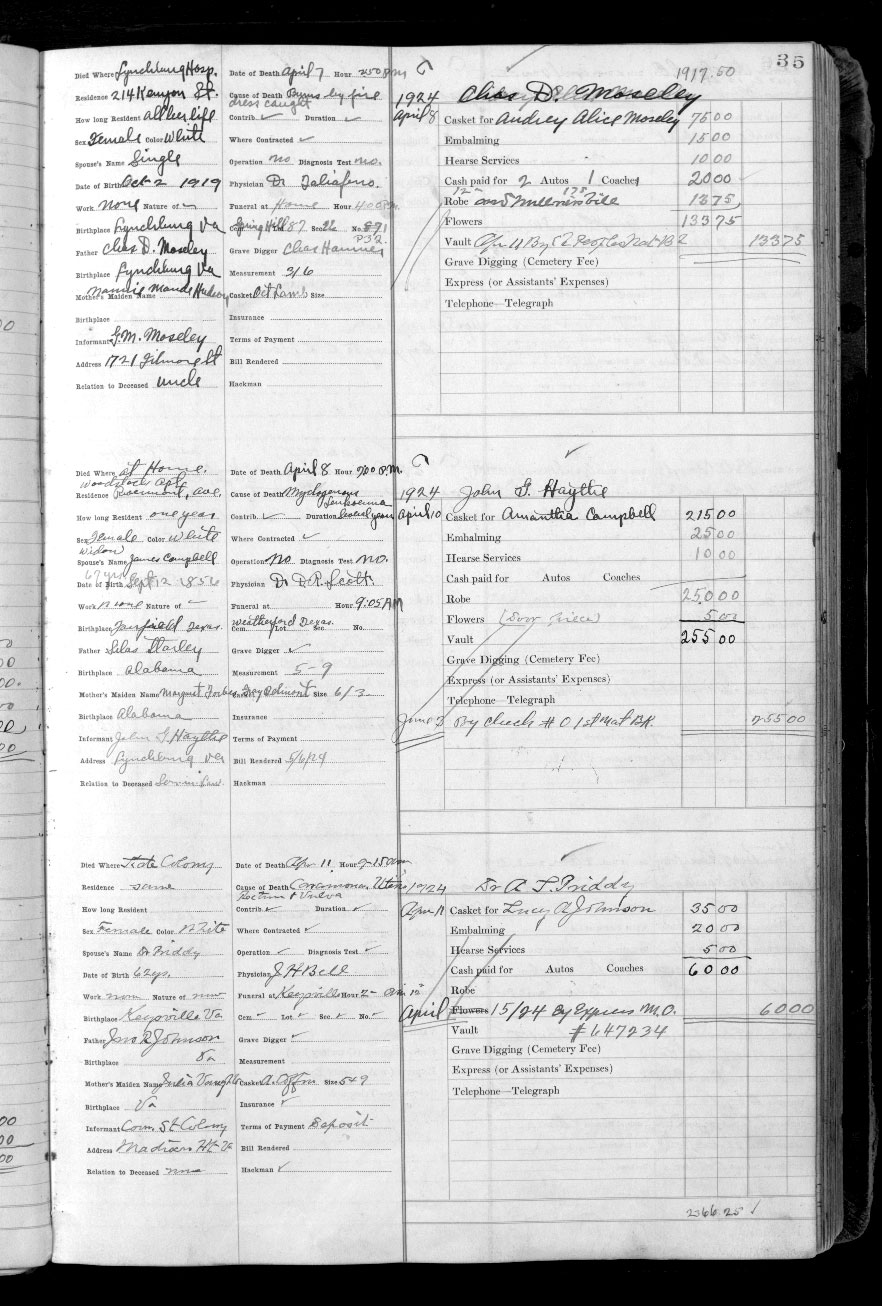 35
1917.50
Died Where Lynchburg Hosp. Date of Death April 7 Hour 2 50 P.M.
Residence 214 Kenyon St. Cause of Death Burns by fire
dress caught
1924 Chas. D. Moseley
How long Resident all her life Contrib. ✓ Duration ✓
April 8 Casket for Audrey Alice Moseley 75 00
Sex Female Color White Where Contracted ✓
Embalming 15 00
Spouse's Name Single Operation no Diagnosis Test no.
Hearse Services 10 00
Date of Birth Oct 2 1919 Physician Dr Taliaferro.
Cash paid for 2 Autos 1 Coaches 20 00
Work None Nature of Funeral at Home Hour 4 00 P.M.
Robe and 13 75
Birthplace Lynchburg Va Cem. Spring Hill Lot 87 Sec. No. 871
P32.
Flowers 133 75
Father Chas D. Moseley Grave Digger Chas Hammer
Vault 133 75
Birthplace Lynchburg Va Measurement 3/6
Grave Digging (Cemetery Fee)
Mother's Maiden Name Nannie Maude Hudson Casket Oct Lamb Size
Express (or Assistants' Expenses)
Birthplace Insurance
Telephone—Telegraph
Informant G.M. Moseley Terms of Payment
Address 1721 Filmore St Bill Rendered
Relation to Deceased Uncle Hackman
Died Where at Home. Date of Death April 8 Hour 2 00 P.M.
Woodstock Apts
Residence Rivermont Ave. Cause of Death Myelogenous
Leukaemia
1924 John G. Haythe
How long Resident one year Contrib. ✓ Duration Several years
April 10 Casket for Amanthia Campbell 215 00
Sex Female Color White Where Contracted ✓
Embalming 25 00
Widow
Spouse's Name James Campbell Operation No Diagnosis Test no.
Hearse Services 10 00
67 yrs
Date of Birth Sept 12 1856 Physician Dr D.P. Scott
Cash paid for Autos Coaches
Work none Nature of Funeral at Hour 9:05 AM
Robe 250.00
Birthplace Fairfield Texas. Weatherford Texas. Cem. Lot Sec. No.
Flowers (Door piece) 5 00
Father Silas Starley Grave Digger ✓
Vault 255 00
Birthplace Alabama Measurement 5-9
Grave Digging (Cemetery Fee)
Mother's Maiden Name Margaret Forbes Casket Grey Belmont Size 6/3
Express (or Assistants' Expenses)
Telephone—Telegraph
Birthplace Alabama Insurance
June 3 By check # 0 1st Nat BK. 255 00
Informant John G Haythe Terms of Payment
Address Lynchburg Va Bill Rendered 5/6/24
Relation to Deceased Son in Law Hackman
Died Where State Colony Date of Death Apr 11 Hour 2-15 am
Residence same Cause of Death Carcinoma Uteri
Rectum & Vulva
1924 Dr A. S. Priddy
How long Resident Contrib. ✓ Duration ✓
Apr 11 Casket for Lucy A Johnson 35 00
Sex Female Color White Where Contracted ✓
Embalming 20 00
Spouse's Name Dr Priddy Operation ✓ Diagnosis Test ✓
Hearse Services 5 00
Date of Birth 62 yrs. Physician J H Bell
Cash paid for Autos Coaches 60 00
Work none Nature of none Funeral at Keysville Hour 2- 12
Robe
Birthplace Keysville Va Cem ✓ Lot ✓ Sec. ✓ No. ✓
April Flowers 15/24 By Express M.O. 60 00
Father Jno R Johnson Grave Digger ✓
Vault #647234
Birthplace Va Measurement
Grave Digging (Cemetery Fee)
Mother's Maiden Name Julia Casket Size 5 4 9
Express (or Assistants' Expenses)
Birthplace Va Insurance ✓
Telephone—Telegraph
Informant Com. St Colony Terms of Payment Deposit
Address Madison Ht Va Bill Rendered
Relation to Deceased none Hackman ✓
2366.25 ✓